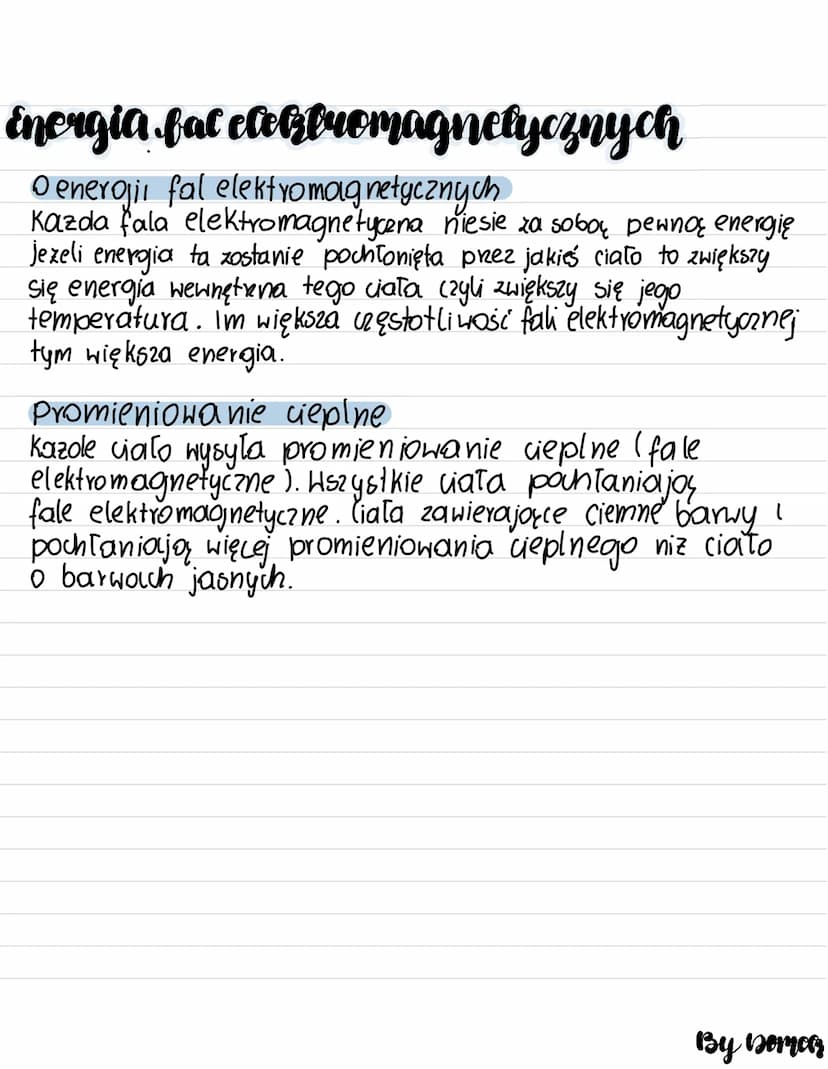 Energia fal elektromagnetycznych
O energii fal elektromagnetycznych
Każda fala elektromagnetyczna niesie za sobą pewną energię
jeżeli energia ta zostanie pochłonięta przez jakieś ciało to zwiększy
się energia wewnętrzna tego ciała czyli zwiększy się jego
temperatura. Im większa częstotliwość fali elektromagnetycznej
tym większa energia.
Promieniowanie cieplne
Każde ciało wysyła promieniowanie cieplne (fale
elektromagnetyczne). Wszystkie ciała pochłaniają
fale elektromagnetyczne. Ciała zawierające ciemne barwy i
pochłaniają więcej promieniowania cieplnego niż ciało
o barwach jasnych.
By